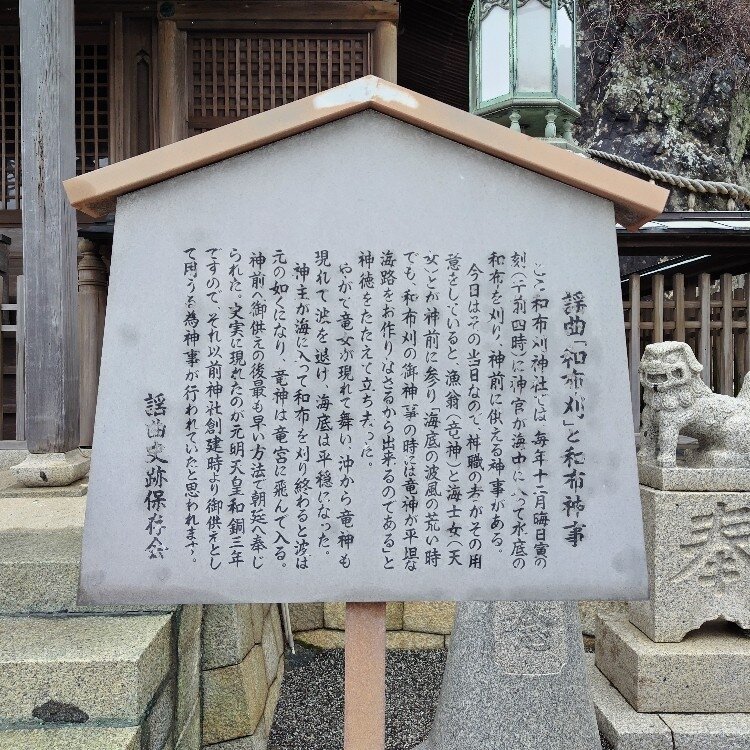 謡曲「和布刈」と和布神事
ここ和布刈神社では、毎年十二月晦日寅の
刻(午前四時)に神官が海中に入って水底の
和布を刈り、神前に供える神事がある。
今日はその当日なので、神職の者がその用
意をしていると、漁翁(竜神)と海士女(天
女)とが神前に参り「海底の波風の荒い時
でも、和布刈の御神事の時には竜神が平坦な
海路をお作りなさるから出来るのである」と
神徳をたたえて立ち去った。
やがて竜女が現れて舞い、沖から竜神も
現れて波を退け、海底は平穏になった。
神主が海に入って和布を刈り終わると波は
元の如くになり、竜神は竜宮に飛んで入る。
神前へ御供えの後最も早い方法で朝廷へ奉じ
られた。史実に現れたのが元明天皇和銅三年
ですので、それ以前神社創建時より御供えとし
て用うる為神事が行われていたと思われます。
謡曲史跡保存会
奉